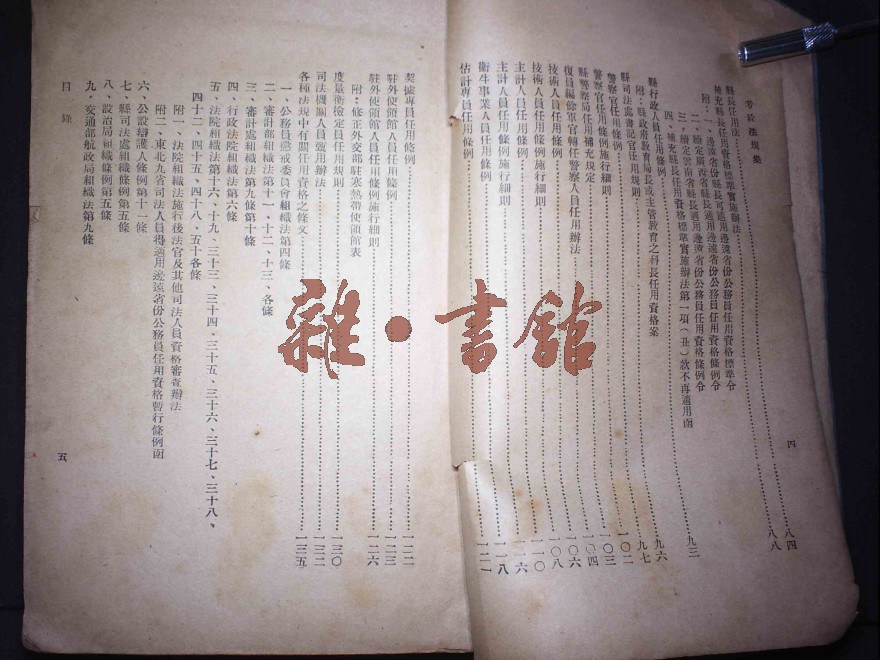 考銓法規集
縣長任用法……八四
補充縣長任用資格標準實施辦法……八八
附：一、邊遠省份縣長可適用邊遠省份公務員任用資格標準令
二、續定廣西省縣長適用邊遠省份公務員任用資格條例令
三、續定雲南省縣長適用邊遠省份公務員任用資格條例令
四、補充縣長任用資格標準實施辦法第一項（丑）款不再適用函……九三
縣行政人員任用條例……九六
附：縣政府教育局長或主管教育之科長任用資格案……九七
縣司法處書記官任用規則……一〇二
警察官任用條例……一〇三
警察官任用條例施行細則……一〇四
縣警察局任用補充規定……一〇六
復員編餘軍官轉任警察人員任用辦法……一〇八
技術人員任用條例……一一〇
技術人員任用條例施行細則……一一六
主計人員任用條例……一一八
主計人員任用條例施行細則
衛生事業人員任用條例……一二一
估計專員任用條例
四
契據專員任用條例……一二二
駐外使領館人員任用條例……一二三
駐外使領館人員任用條例施行細則……一二六
附：修正外交部駐寒熱帶使領館表
度量衡檢定人員任用規則……一三〇
司法機關人員甄用辦法……一三二
各種法規中有關任用資格之條文……一三五
一、公務員懲戒委員會組織法第四條
二、審計部組織法第十一、十二、十三、各條
三、審計處組織法第九條第十條
四、行政法院組織法第六條
五、法院組織法第十六、十九、三十三、三十四、三十五、三十六、三十七、三十八、
四十二、四十五、四十八、五十各條
附一、法院組織法施行後法官及其他司法人員資格審查辦法
附二、東北九省司法人員得適用邊遠省份公務員任用資格暫行條例函
六、公設辯護人條例第十一條
七、縣司法處組織條例第五條
八、設治局組織條例第五條
九、交通部航政局組織法第九條
目錄
五
雜·書館